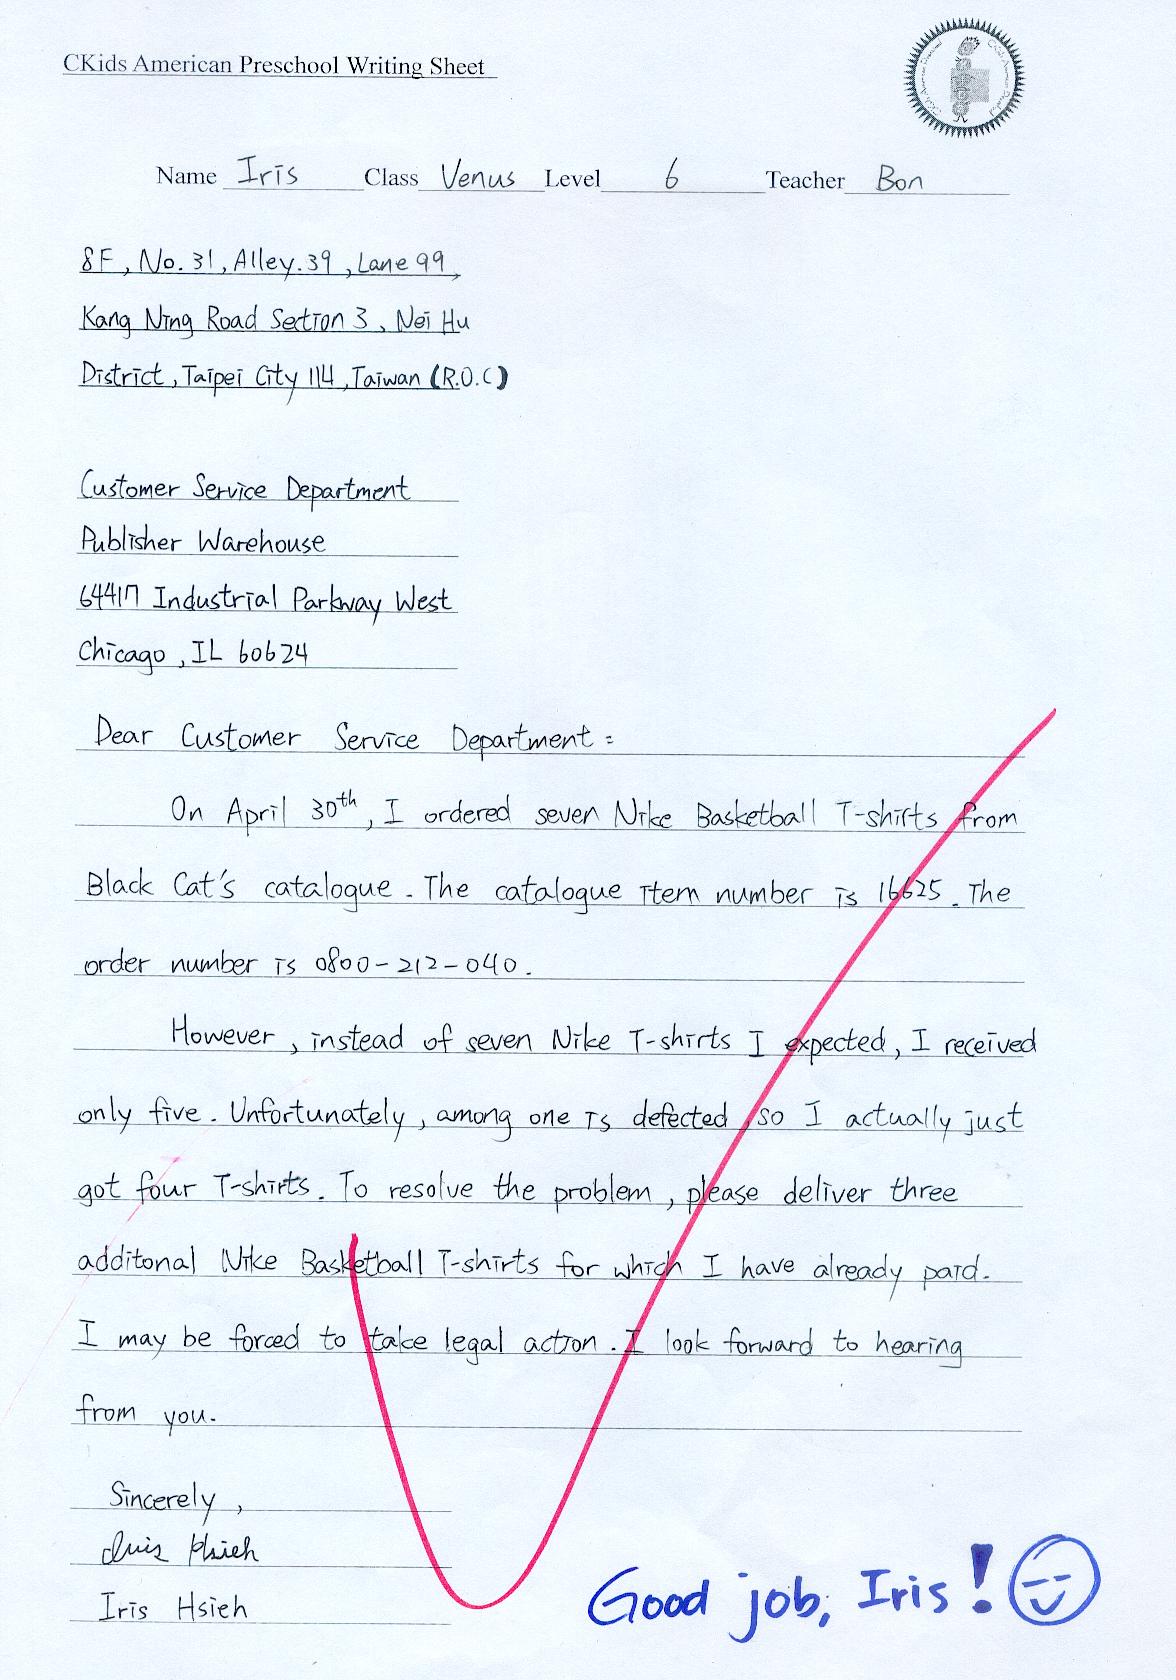 CKids American Preschool Writing Sheet
Name Iris Class Venus Level 6 Teacher Bon
8F, No. 31, Alley. 39, Lane 99,
Kang Ning Road Section 3, Nei Hu
District, Taipei City 114, Taiwan (R.O.C)
Customer Service Department
Publisher Warehouse
64417 Industrial Parkway West
Chicago, IL 60624
Dear Customer Service Department:
On April 30th, I ordered seven Nike Basketball T-shirts from
Black Cat's catalogue. The catalogue item number is 16625. The
order number is 0800-212-040.
However, instead of seven Nike T-shirts I expected, I received
only five. Unfortunately, among one is defected, so I actually just
got four T-shirts. To resolve the problem, please deliver three
additonal Nike Basketball T-shirts for which I have already paid.
I may be forced to take legal action. I look forward to hearing
from you.
Sincerely,
Iris Hsieh
Iris Hsieh
Good job, Iris!